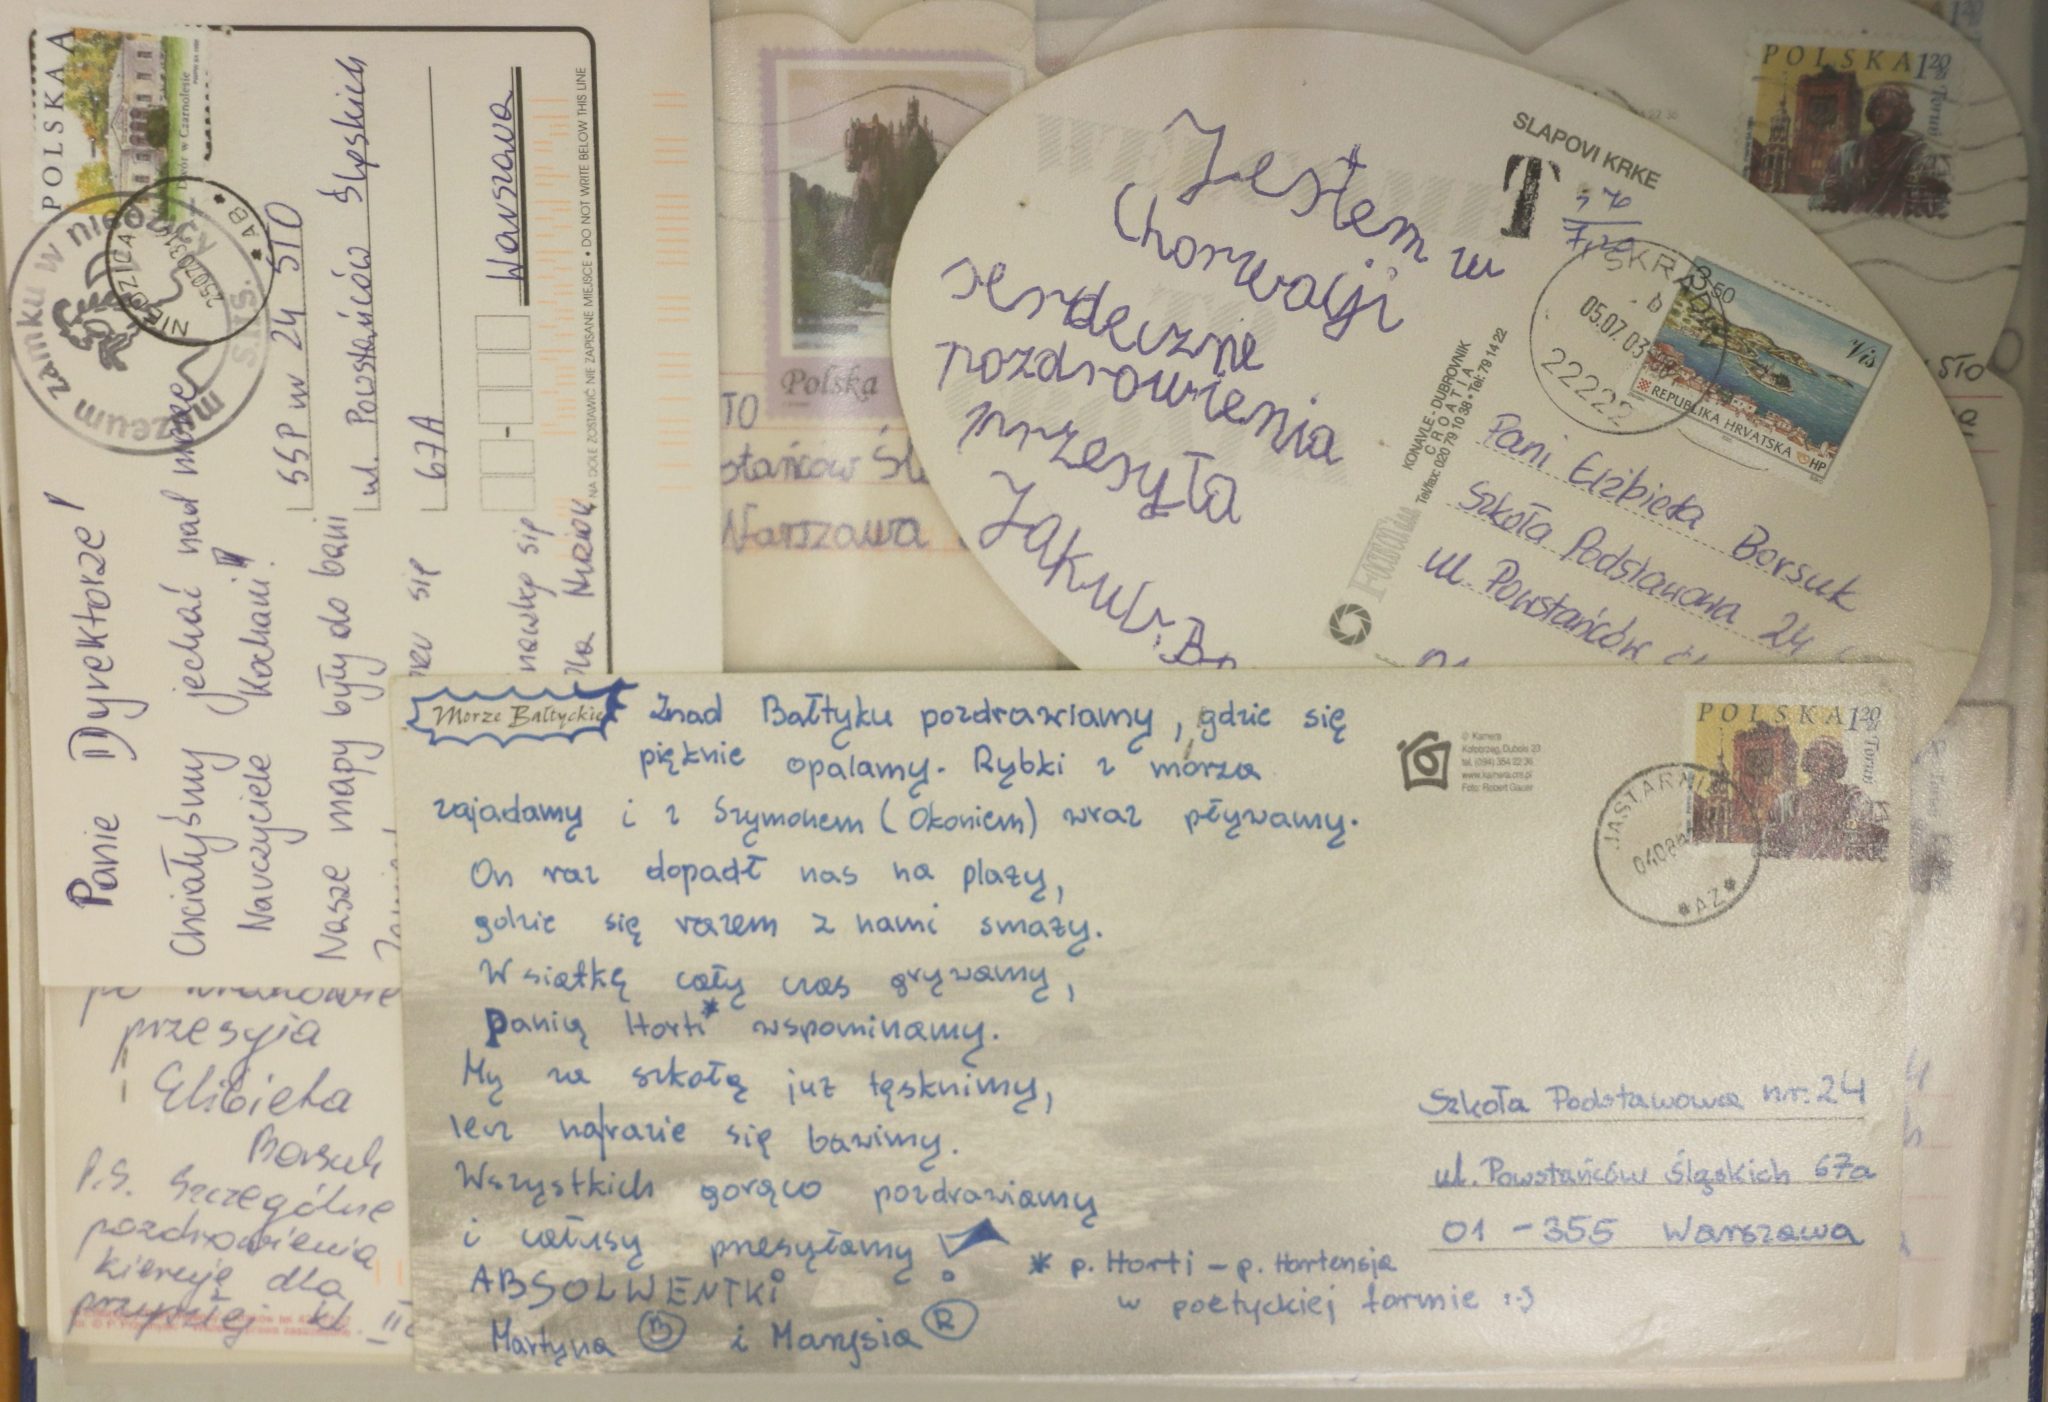 POLSKA
Dwór w Czarnolesie
muzeum zamku w niedzicy
S.H.S.
NIEDZICA
AB
Panie Dyrektorze!
Chciałyśmy jechać nad morze
Nauczyciele Kochani!
Nasze mapy były do bani
SSP nr 24 STO
ul. Powstańców Śląskich
67A
Warszawa
NA DOLE ZOSTAWIĆ NIE ZAPISANE MIEJSCE • DO NOT WRITE BELOW THIS LINE
Polska
TO
stańców Śl
Warszawa
POLSKA 1 20 zł
Toruń
STO
Jestem w
Chorwacji
serdeczne
pozdrowienia
przesyła
Jakub B
SLAPOVI KRKE
T
SKRADIN
05.07.03
22222
3.50
Vis
REPUBLIKA HRVATSKA
HP
KONAVLE - DUBROVNIK
CROATIA
Tel/fax: 020 79 10 38 • Tel: 79 14 22
Pani Elżbieta Borsuk
Szkoła Podstawowa 24
ul. Powstańców
przesyła
Elżbieta
Borsuk
P.S. Szczególne
pozdrowienia
kieruję dla
przyszłej kl. II
Morze Bałtyckie
Znad Bałtyku pozdrawiamy, gdzie się
pięknie opalamy. Rybki z morza
zajadamy i z Szymonem (Okoniem) wraz pływamy.
On raz dopadł nas na plaży,
gdzie się razem z nami smaży.
W siatkę cały czas grywamy,
panią Horti* wspominamy.
My za szkołą już tęsknimy,
lecz narazie się bawimy.
Wszystkich gorąco pozdrawiamy
i całusy przesyłamy!
ABSOLWENTKI
Martyna B i Marysia R
* p. Horti - p. Hortensja
w poetyckiej formie :-)
© Kamera
Kołobrzeg, Dubois 23
tel. (094) 354 22 36
www.kamera.om.pl
Foto: Robert Gauer
POLSKA 1 20 zł
Toruń
JASTARNIA
AZ
Szkoła Podstawowa nr. 24
ul. Powstańców Śląskich 67a
01-355 Warszawa